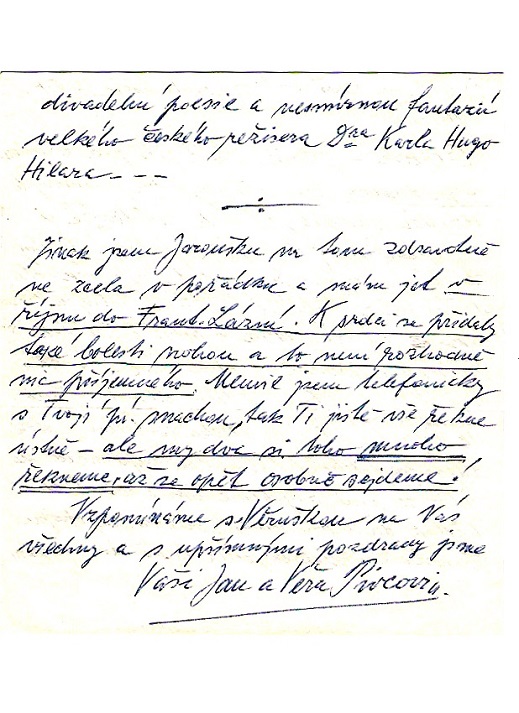 divadelní poesie a nesmírnou fantazií
velkého českého režisera Dra Karla Hugo
Hilara - - -
Jinak jsem Jaroušku na tom zdravotně
ne zcela v pořádku a mám jet v
říjnu do Frant. Lázní. K srdci se přidaly
také bolesti nohou a to není rozhodně
nic příjemného. Mluvil jsem telefonicky
s Tvojí pí. snachou, tak Ti jistě vše řekne
ústně - ale my dva si toho mnoho
řekneme, až se opět osobně sejdeme!
Vzpomínáme s Věruškou na Vás
všechny a s upřímnými pozdravy jsme
Vaši Jan a Věra